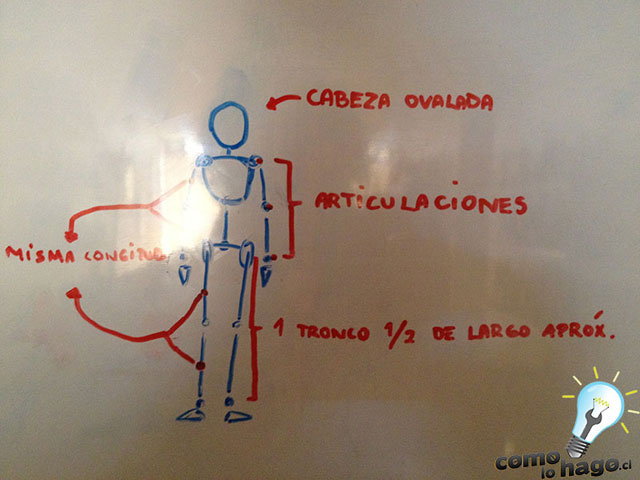 CABEZA OVALADA
ARTICULACIONES
MISMA LONGITUD
1 TRONCO 1/2 DE LARGO APRÓX.
como
lo hago.cl